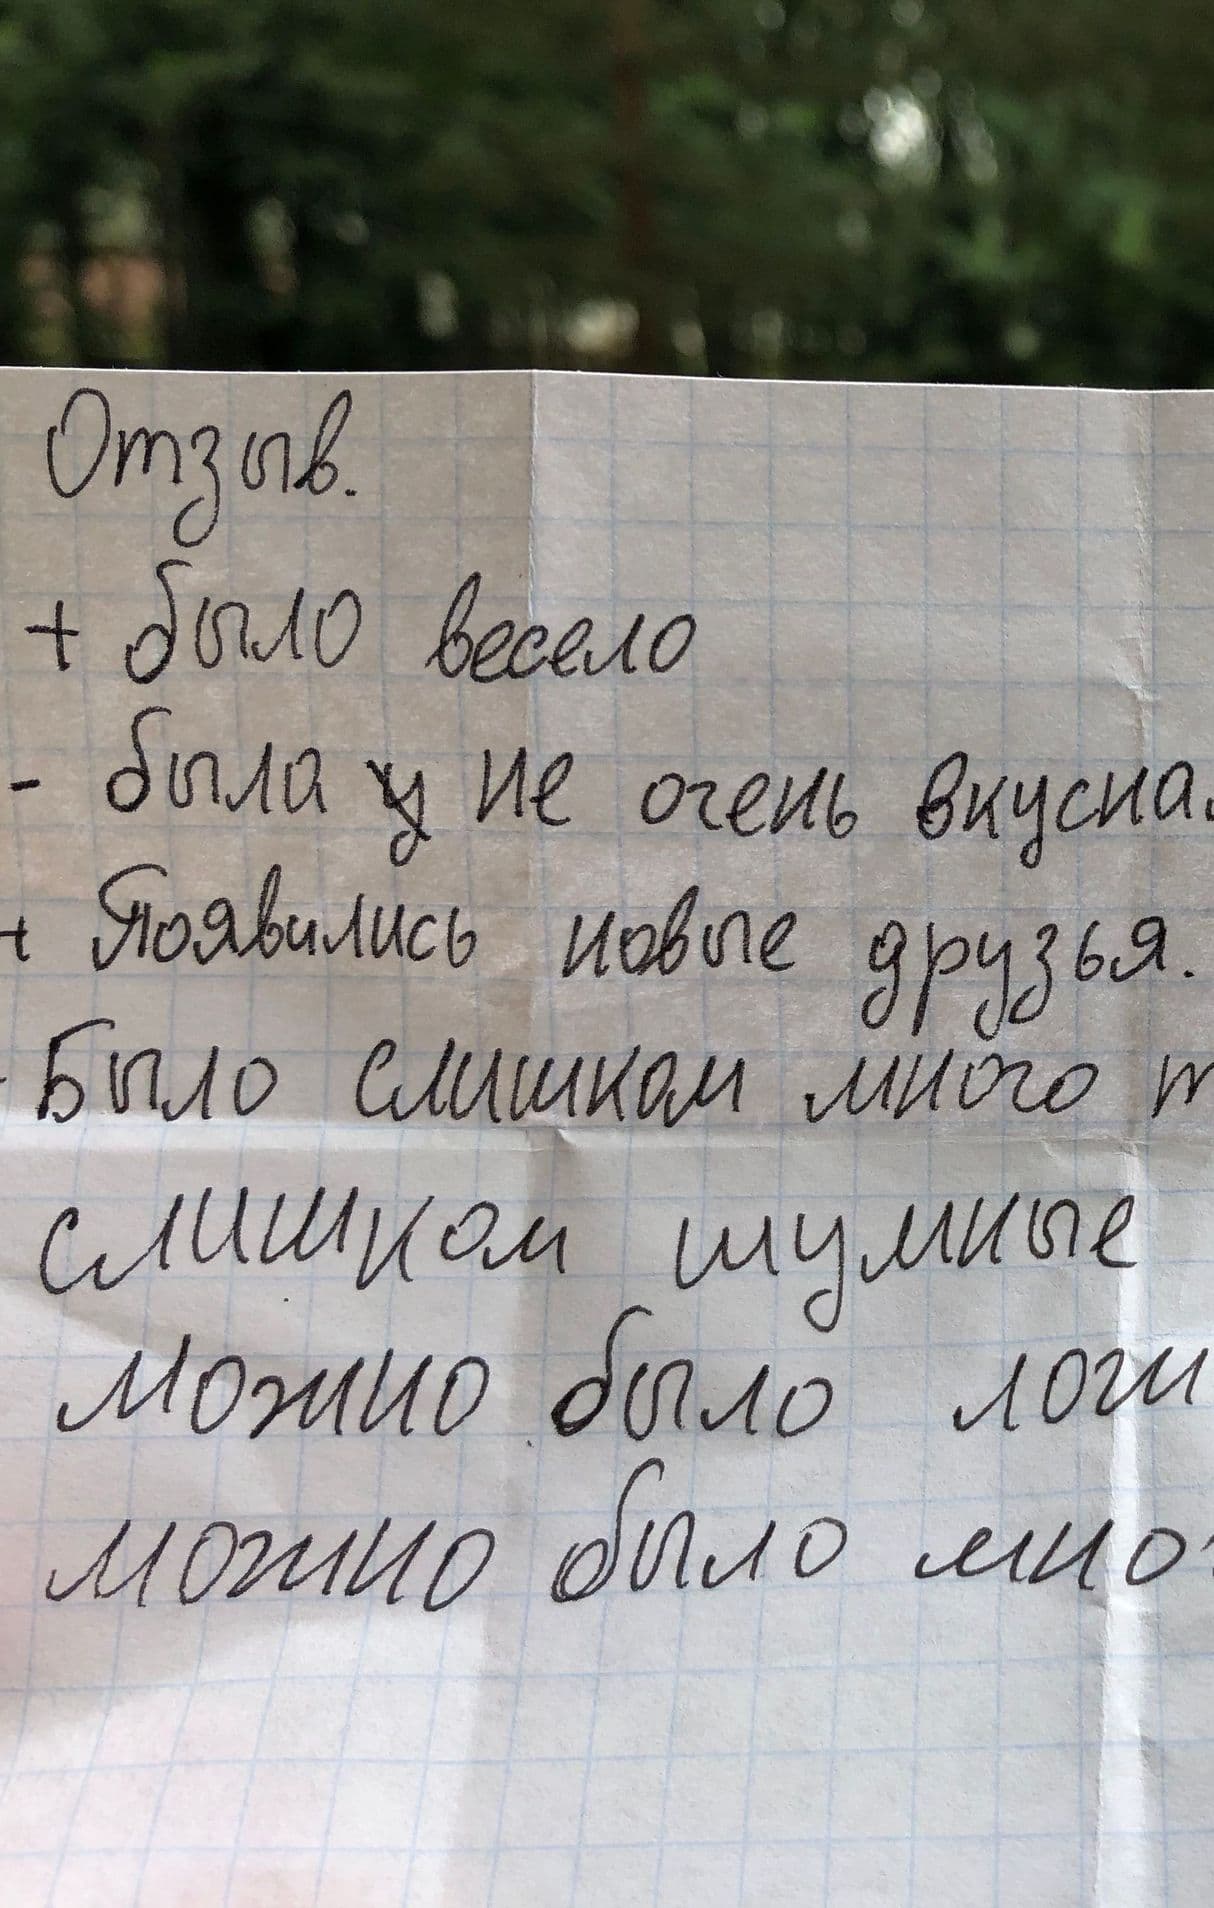 Отзыв.
+ было весело
- была не очень вкусна
+ Появились новые друзья.
- Было слишком много
слишком шумные
можно было
можно было